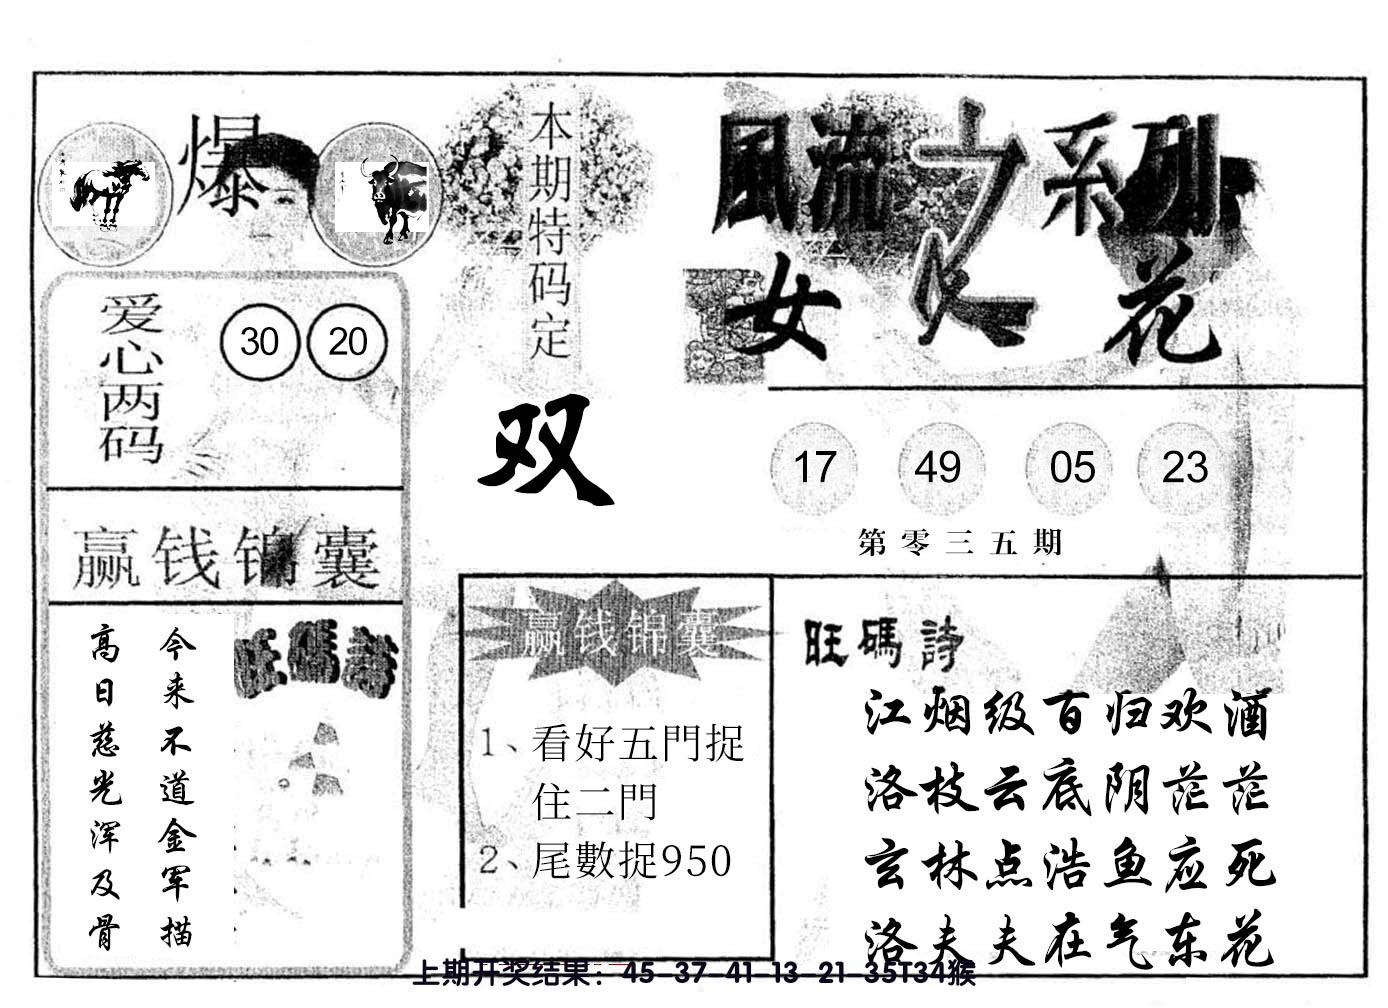 爆
本期特码定
双
風流之系列
女人花
爱心两码
30 20
17 49 05 23
第零三五期
赢钱锦囊
今来不道金军描
高日慈光浑及骨
旺碼詩
赢钱锦囊
1、看好五門捉
住二門
2、尾數捉950
旺碼詩
江烟级百归欢酒
洛枝云底阴茫茫
玄林点浩鱼应死
洛夫夫在气东花
上期开奖结果：45-37-41-13-21-35T34猴